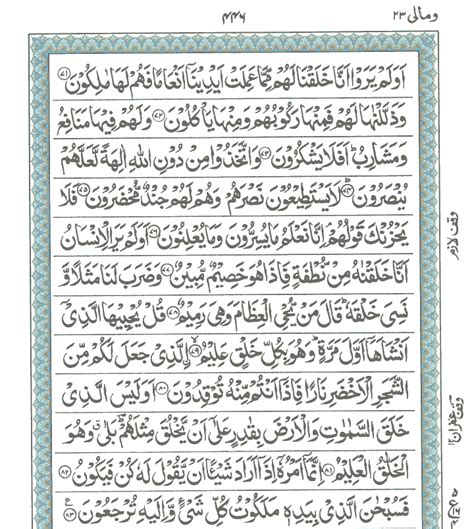 ومالی ٢٣
٤٤٦
اَوَلَمْ يَرَوْا اَنَّا خَلَقْنَا لَهُمْ مِّمَّا عَمِلَتْ اَيْدِيْنَآ اَنْعَامًا فَهُمْ لَهَا مٰلِكُوْنَ ٧١
وَذَلَّلْنٰهَا لَهُمْ فَمِنْهَا رَكُوْبُهُمْ وَمِنْهَا يَاْكُلُوْنَ ٧٢ وَلَهُمْ فِيْهَا مَنَافِعُ
وَمَشَارِبُ ؕ اَفَلَا يَشْكُرُوْنَ ٧٣ وَاتَّخَذُوْا مِنْ دُوْنِ اللّٰهِ اٰلِهَةً لَّعَلَّهُمْ
يُنْصَرُوْنَ ٧٤ لَا يَسْتَطِيْعُوْنَ نَصْرَهُمْ ۙ وَهُمْ لَهُمْ جُنْدٌ مُّحْضَرُوْنَ ٧٥ فَلَا
يَحْزُنْكَ قَوْلُهُمْ ۘ اِنَّا نَعْلَمُ مَا يُسِرُّوْنَ وَمَا يُعْلِنُوْنَ ٧٦ اَوَلَمْ يَرَ الْاِنْسَانُ
اَنَّا خَلَقْنٰهُ مِنْ نُّطْفَةٍ فَاِذَا هُوَ خَصِيْمٌ مُّبِيْنٌ ٧٧ وَضَرَبَ لَنَا مَثَلًا وَّ
نَسِيَ خَلْقَهٗ ؕ قَالَ مَنْ يُّحْيِ الْعِظَامَ وَهِيَ رَمِيْمٌ ٧٨ قُلْ يُحْيِيْهَا الَّذِيْٓ
اَنْشَاَهَآ اَوَّلَ مَرَّةٍ ؕ وَهُوَ بِكُلِّ خَلْقٍ عَلِيْمٌ ٧٩ الَّذِيْ جَعَلَ لَكُمْ مِّنَ
الشَّجَرِ الْاَخْضَرِ نَارًا فَاِذَآ اَنْتُمْ مِّنْهُ تُوْقِدُوْنَ ٨٠ اَوَلَيْسَ الَّذِيْ
خَلَقَ السَّمٰوٰتِ وَالْاَرْضَ بِقٰدِرٍ عَلٰٓى اَنْ يَّخْلُقَ مِثْلَهُمْ ؕ بَلٰى ۗ وَهُوَ
الْخَلّٰقُ الْعَلِيْمُ ٨١ اِنَّمَآ اَمْرُهٗٓ اِذَآ اَرَادَ شَيْـًٔا اَنْ يَّقُوْلَ لَهٗ كُنْ فَيَكُوْنُ ٨٢
فَسُبْحٰنَ الَّذِيْ بِيَدِهٖ مَلَكُوْتُ كُلِّ شَيْءٍ وَّاِلَيْهِ تُرْجَعُوْنَ ٨٣
وقف لازم
وقف غفران